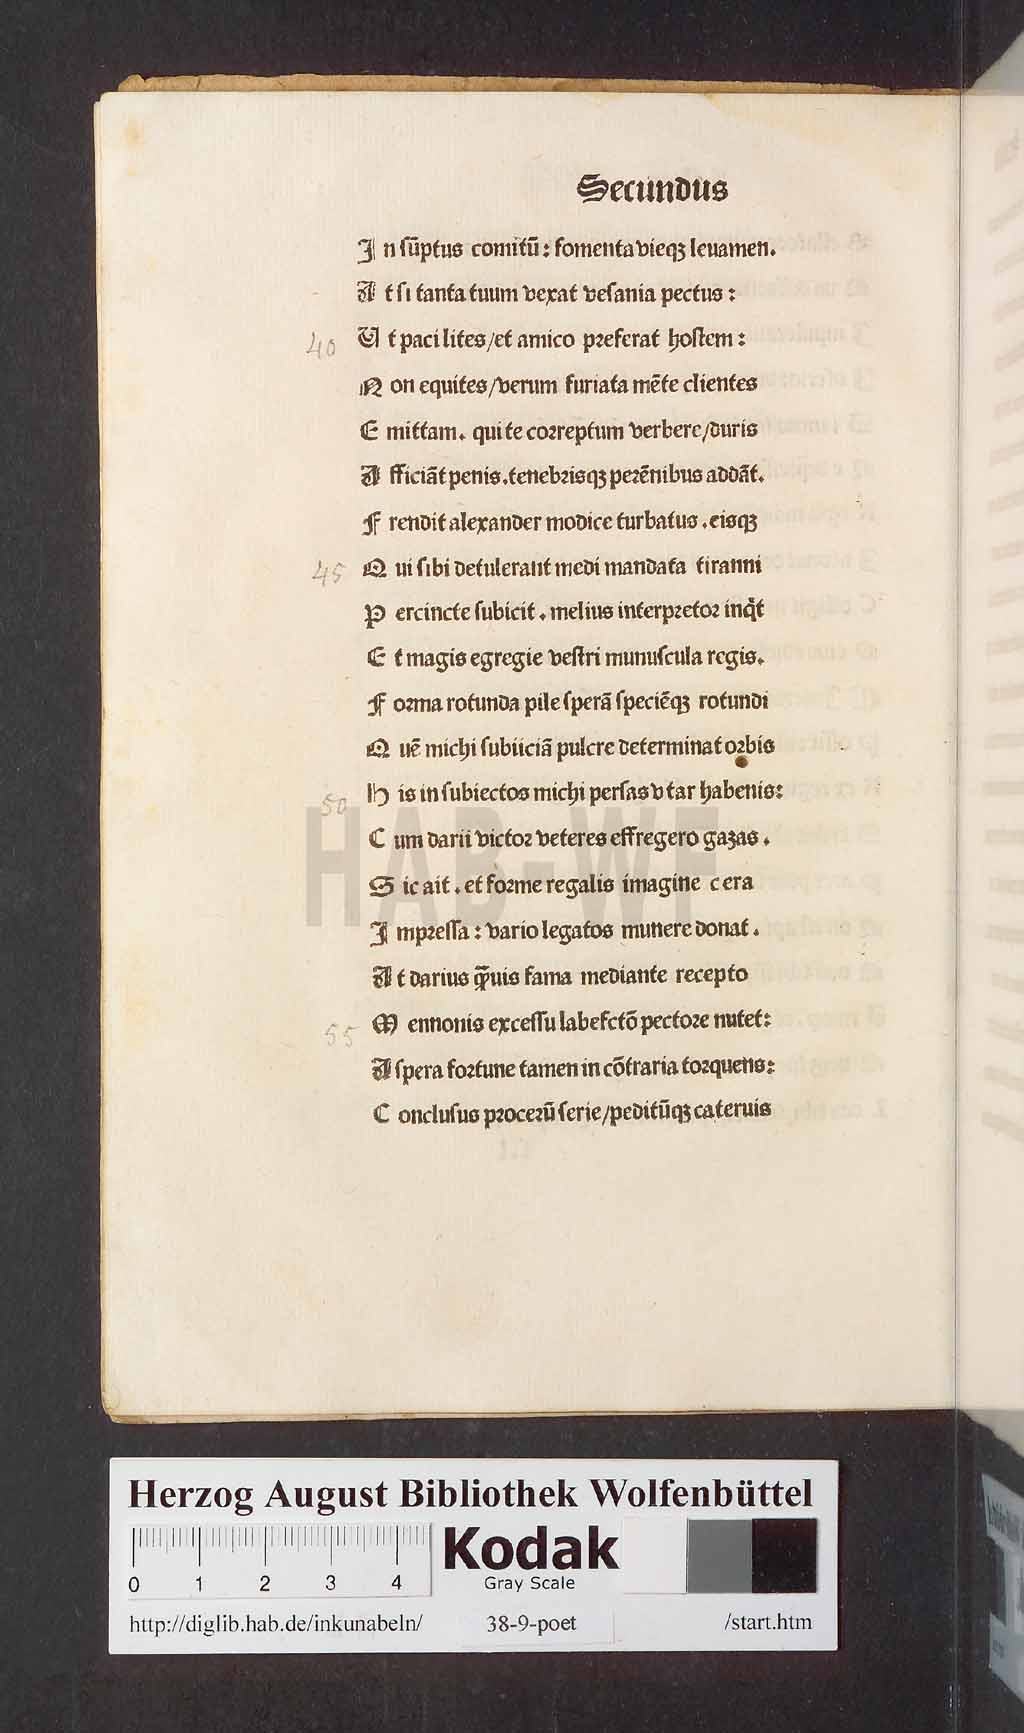 Secundus
In sūptus comitū: fomenta vieqꝫ leuamen.
At si tanta tuum vexat vesania pectus:
40 Ut paci lites/et amico preferat hostem:
Non equites/verum furiata mēte clientes
Emittam. qui te correptum verbere/duris
Afficiāt penis.tenebrisqꝫ perēnibus addāt.
Frendit alexander modice turbatus.eisqꝫ
45 Qui sibi detulerant medi mandata tiranni
Percincte subicit. melius interpretor inqͥt
Et magis egregie vestri munuscula regis.
Forma rotunda pile sperā speciēqꝫ rotundi
Quē michi subiiciā pulcre determinat orbis
50 His in subiectos michi persas vtar habenis:
Cum darii victor veteres effregero gazas.
Sic ait. et forme regalis imagine cera
Impressa: vario legatos munere donat.
At darius qͣuis fama mediante recepto
55 Mennonis excessu labefctō pectore nutet:
Aspera fortune tamen in cōtraria torquens:
Conclusus procerū serie/peditūqꝫ cateruis
HAB-WF
Herzog August Bibliothek Wolfenbüttel
0 1 2 3 4
Kodak
Gray Scale
http://diglib.hab.de/inkunabeln/ 38-9-poet /start.htm